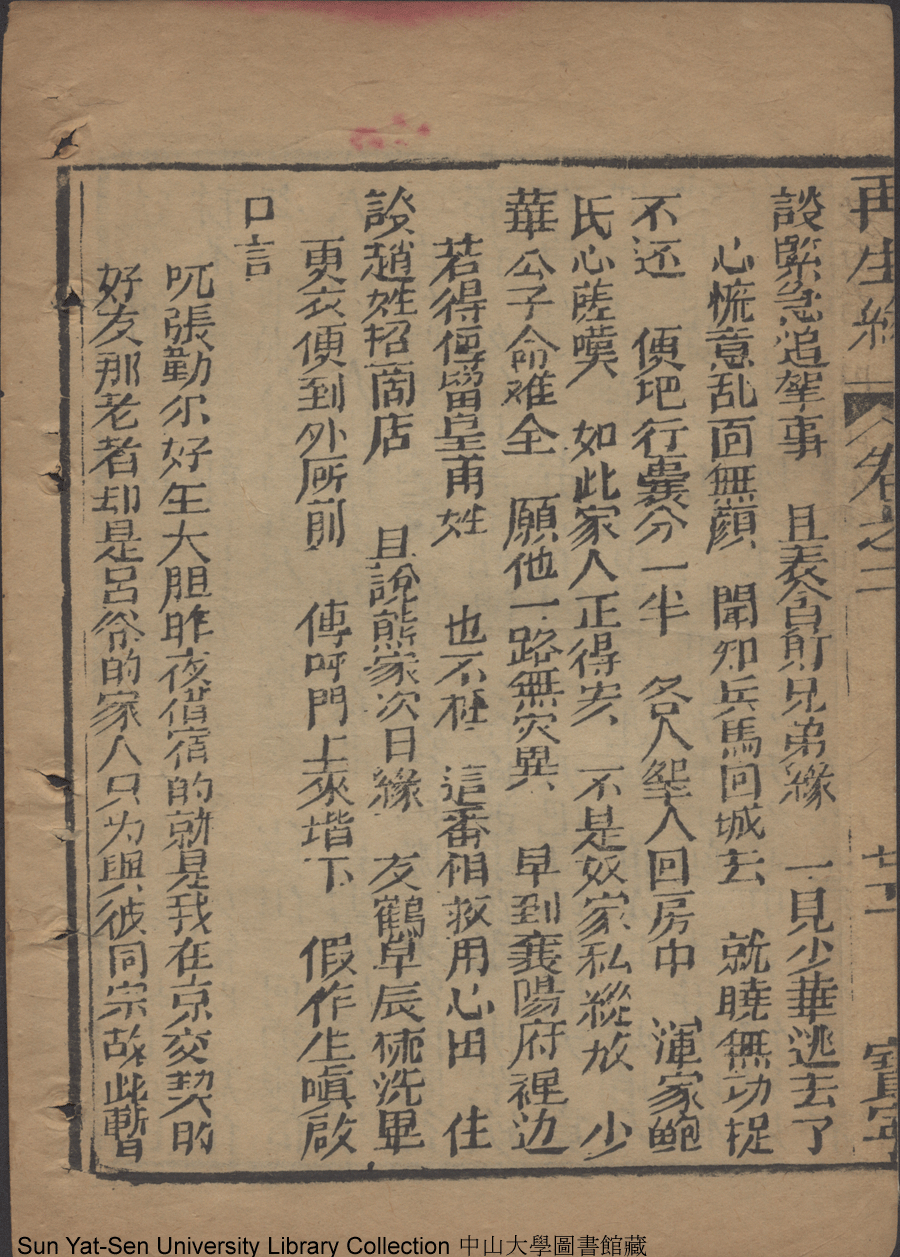 再生緣 卷之二 廿一 寳寧
談緊急追拏事 且表貪財兄弟緣 一見少華逃去了
心慌意乱面無顔 聞知兵馬回城去 就曉無功捉
不还 便把行囊分一半 各人 人回房中 渾家鲍
氏心 嘆 如此家人正得 不是奴家私縱放 少
華公子命难全 願他一路無灾異 早到襄陽府裡边
若得 留皇甫姓 也不枉 這番相救用心田 住
談趙姓招商店 且說熊家次日緣 友鶴早辰梳洗畢
更衣便到外厮前 傳呼門上來堦下 假作生嗔啟
口言
吭張勤尔好生大胆昨夜借宿的就是我在京交契的
好友那老者却是呂爺的家人只为與彼同宗故此暫
Sun Yat-Sen University Library Collection 中山大學圖書館藏